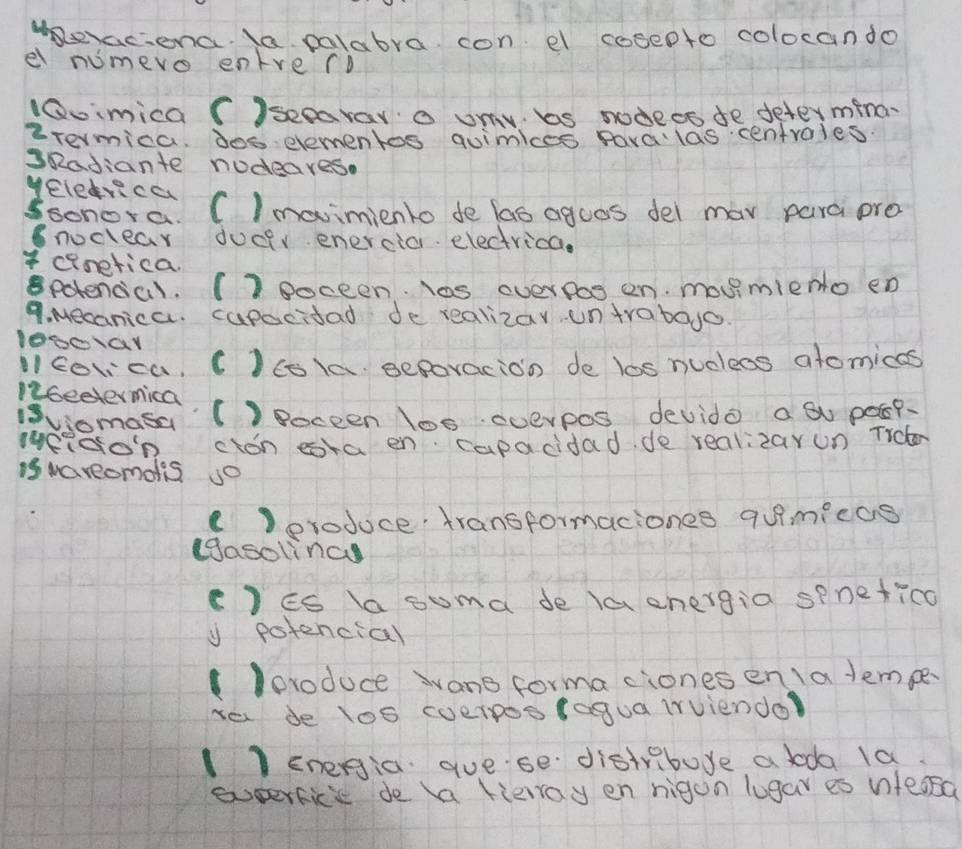 4 Relaciena. la palabra. con. el cosepto colocando
el número entre ()
1 Quimica ( ) separar. o unir. los nodeos de determina-
2 Termica. dos. elementos quimicos para las centrales
3 Radiante nucleares.
4 Eledrica
5 sonora. ( ) movimiento de las aguas del mar para pro
6 nuclear ducir. enercia. electrica.
7 cinetica.
8 potencial. ( ) poceen. los cuerpos en. movimiento en
9. Mecanica. capacidad de realizar un trabajo.
10 solar
11 Eolica. ( ) es la separacion de los nucleos atomicos
12 Geotermica
13 viomasa ( ) poceen los cuerpos devido a su posi-
14 fision ción esta en capacidad de realizar un
15 Mareomotis jo
( ) produce. transformaciones quimicas
(gasolina)
( ) Es la suma de la energia sinetico
y potencial
( ) produce transformaciones en la tempe-
ra de los cuerpos (agua irviendo)
( ) Energia. que se distribuye a toda la.
superficie de la tierra y en nigun lugar es intensa